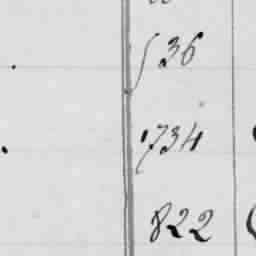 36
734
822